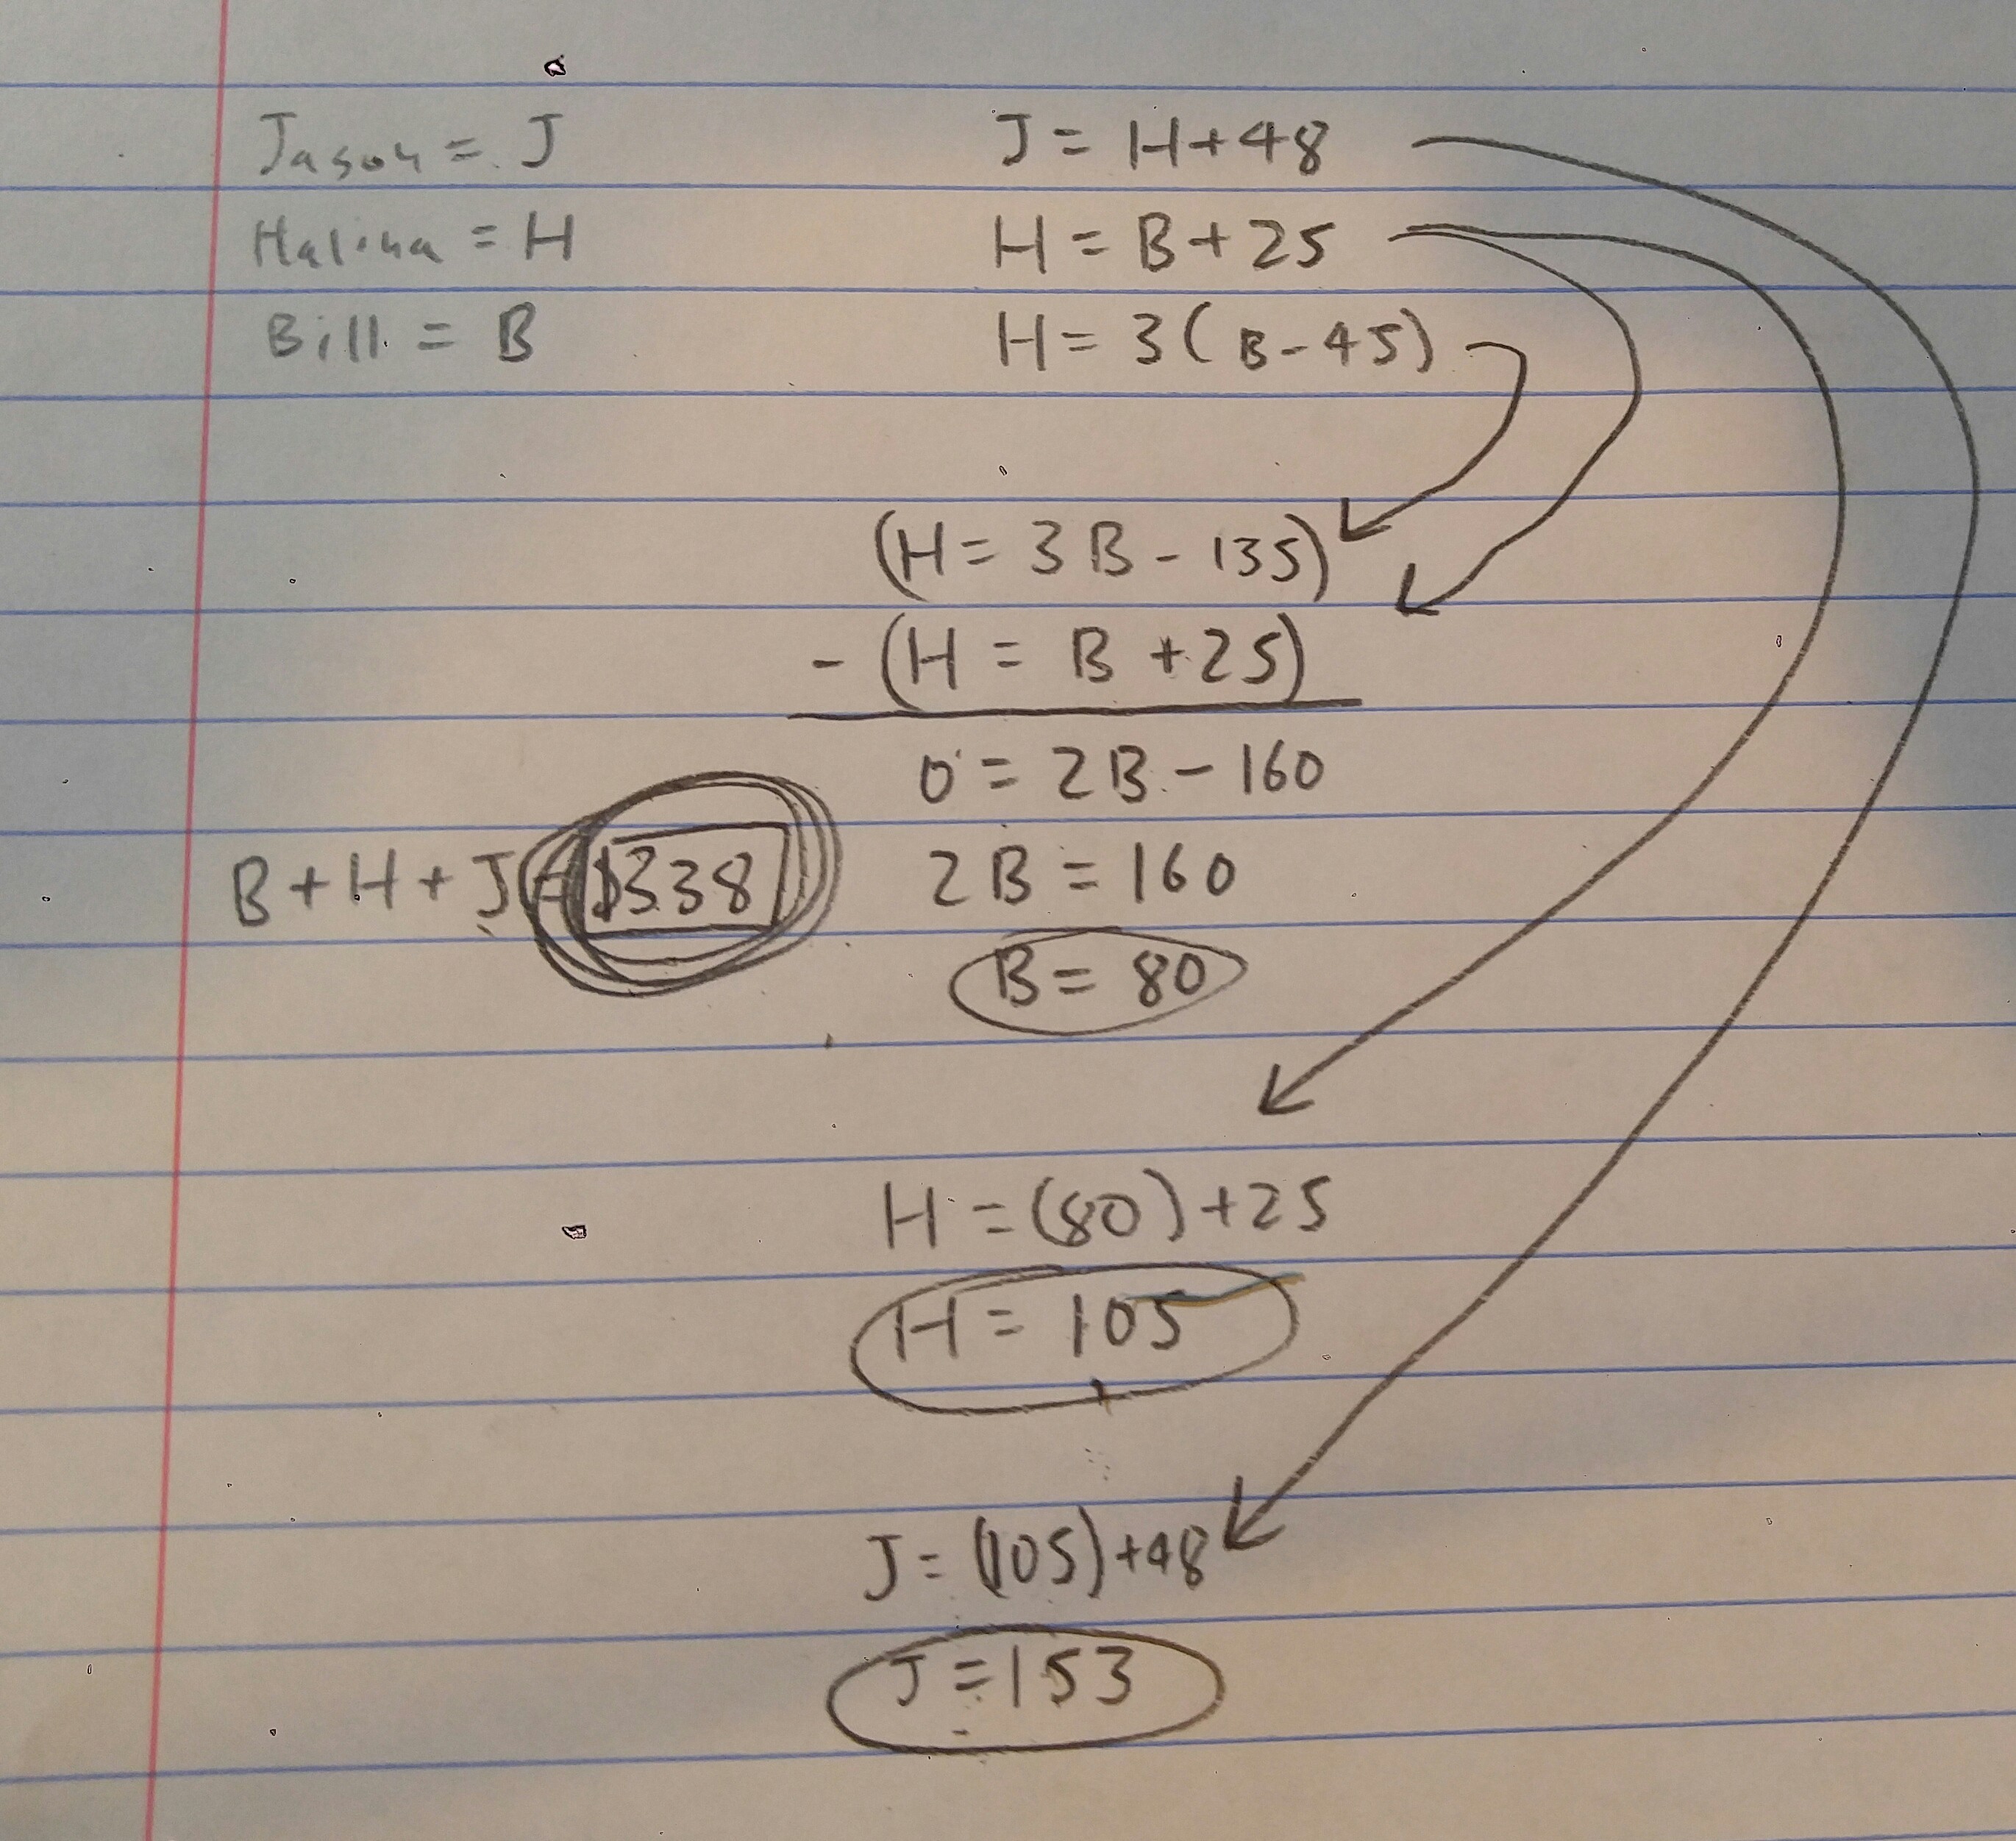 Jason = J
Halina = H
Bill = B
J = H+48
H = B+25
H = 3(B-45)
(H = 3B - 135)
- (H = B + 25)
0 = 2B - 160
2B = 160
B = 80
B+H+J = $338
H = (80)+25
H = 105
J = (105)+48
J = 153